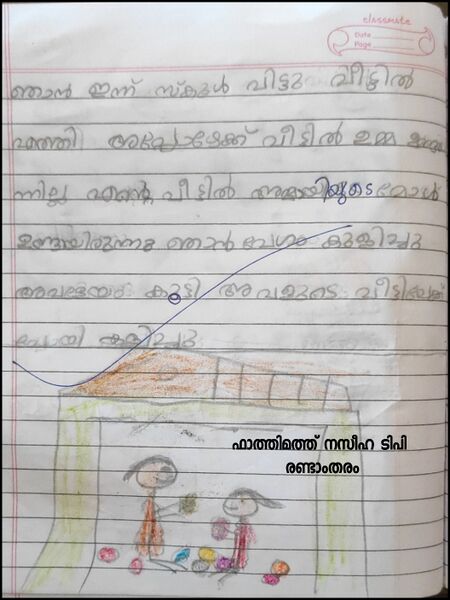 classmate
Date
Page
ഞാൻ ഇന്ന് സ്കൂൾ വിട്ടു വീട്ടിൽ
എത്തി അപ്പോഴേക്ക് വീട്ടിൽ ഉമ്മ ഉണ്ടായിരു
ന്നില്ല എന്റെ വീട്ടിൽ അമ്മായിയുടെ മോൾ
ഉണ്ടായിരുന്നു ഞാൻ വേഗം കുളിച്ചു
അവളേയും കൂട്ടി അവളുടെ വീട്ടിലേക്ക്
പോയി കളിച്ചു
ഫാത്തിമത്ത് നസീഹ ടിപി
രണ്ടാംതരം